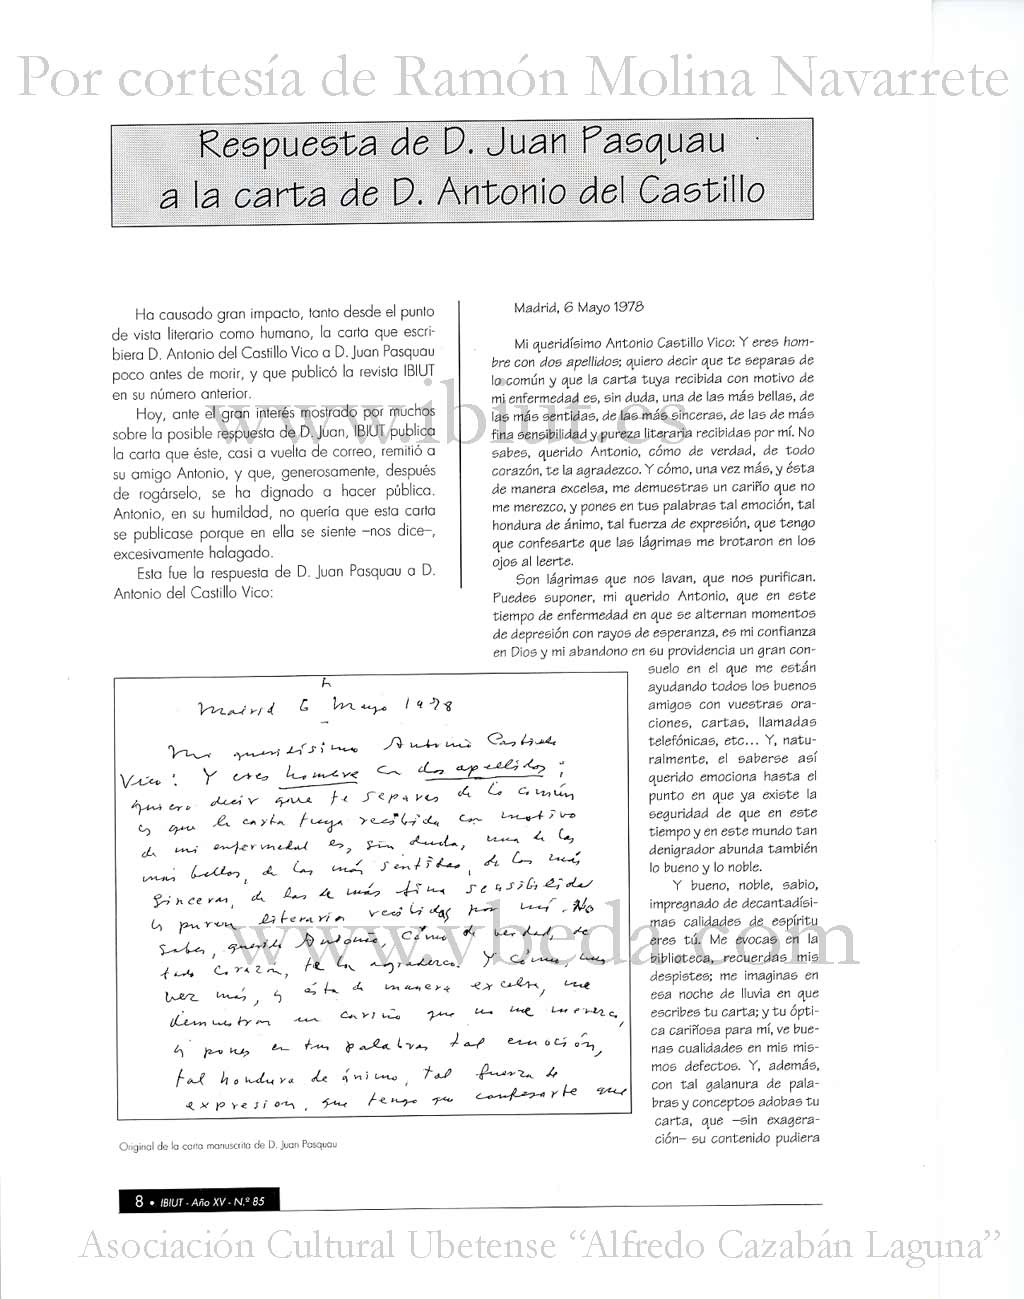 Por cortesía de Ramón Molina Navarrete
Respuesta de D. Juan Pasquau
a la carta de D. Antonio del Castillo
Ha causado gran impacto, tanto desde el punto
de vista literario como humano, la carta que escri-
biera D. Antonio del Castillo Vico a D. Juan Pasquau
poco antes de morir, y que publicó la revista IBIUT
en su número anterior.
Hoy, ante el gran interés mostrado por muchos
sobre la posible respuesta de D. Juan, IBIUT publica
la carta que éste, casi a vuelta de correo, remitió a
su amigo Antonio, y que, generosamente, después
de rogárselo, se ha dignado a hacer pública.
Antonio, en su humildad, no quería que esta carta
se publicase porque en ella se siente –nos dice–,
excesivamente halagado.
Esta fue la respuesta de D. Juan Pasquau a D.
Antonio del Castillo Vico:
Madrid, 6 Mayo 1978
Mi queridísimo Antonio Castillo Vico: Y eres hom-
bre con dos apellidos; quiero decir que te separas de
lo común y que la carta tuya recibida con motivo de
mi enfermedad es, sin duda, una de las más bellas, de
las más sentidas, de las más sinceras, de las de más
fina sensibilidad y pureza literaria recibidas por mí. No
sabes, querido Antonio, cómo de verdad, de todo
corazón, te la agradezco. Y cómo, una vez más, y ésta
de manera excelsa, me demuestras un cariño que no
me merezco, y pones en tus palabras tal emoción, tal
hondura de ánimo, tal fuerza de expresión, que tengo
que confesarte que las lágrimas me brotaron en los
ojos al leerte.
Son lágrimas que nos lavan, que nos purifican.
Puedes suponer, mi querido Antonio, que en este
tiempo de enfermedad en que se alternan momentos
de depresión con rayos de esperanza, es mi confianza
en Dios y mi abandono en su providencia un gran con-
suelo en el que me están
ayudando todos los buenos
amigos con vuestras ora-
ciones, cartas, llamadas
telefónicas, etc... Y, natu-
ralmente, el saberse así
querido emociona hasta el
punto en que ya existe la
seguridad de que en este
tiempo y en este mundo tan
denigrador abunda también
lo bueno y lo noble.
Y bueno, noble, sabio,
impregnado de decantadísi-
mas calidades de espíritu
eres tú. Me evocas en la
biblioteca, recuerdas mis
despistes; me imaginas en
esa noche de lluvia en que
escribes tu carta; y tu ópti-
ca cariñosa para mí, ve bue-
nas cualidades en mis mis-
mos defectos. Y, además,
con tal galanura de pala-
bras y conceptos adobas tu
carta, que –sin exagera-
ción– su contenido pudiera
Madrid 6 Mayo 1978
Mi queridísimo Antonio Castillo
Vico: Y eres hombre con dos apellidos;
quiero decir que te separas de lo común
y que la carta tuya recibida con motivo
de mi enfermedad es, sin duda, una de las
más bellas, de las más sentidas, de las más
sinceras, de las de más fina sensibilidad
y pureza literaria recibidas por mí. No
sabes, querido Antonio, cómo de verdad, de
todo corazón, te la agradezco. Y cómo, una
vez más, y ésta de manera excelsa, me
demuestras un cariño que no me merezco,
y pones en tus palabras tal emoción,
tal hondura de ánimo, tal fuerza de
expresión, que tengo que confesarte que
Original de la carta manuscrita de D. Juan Pasquau
8 • IBIUT - Año XV - N.º 85
www.ibiut.es
www.vbeda.com
Asociación Cultural Ubetense “Alfredo Cazabán Laguna”